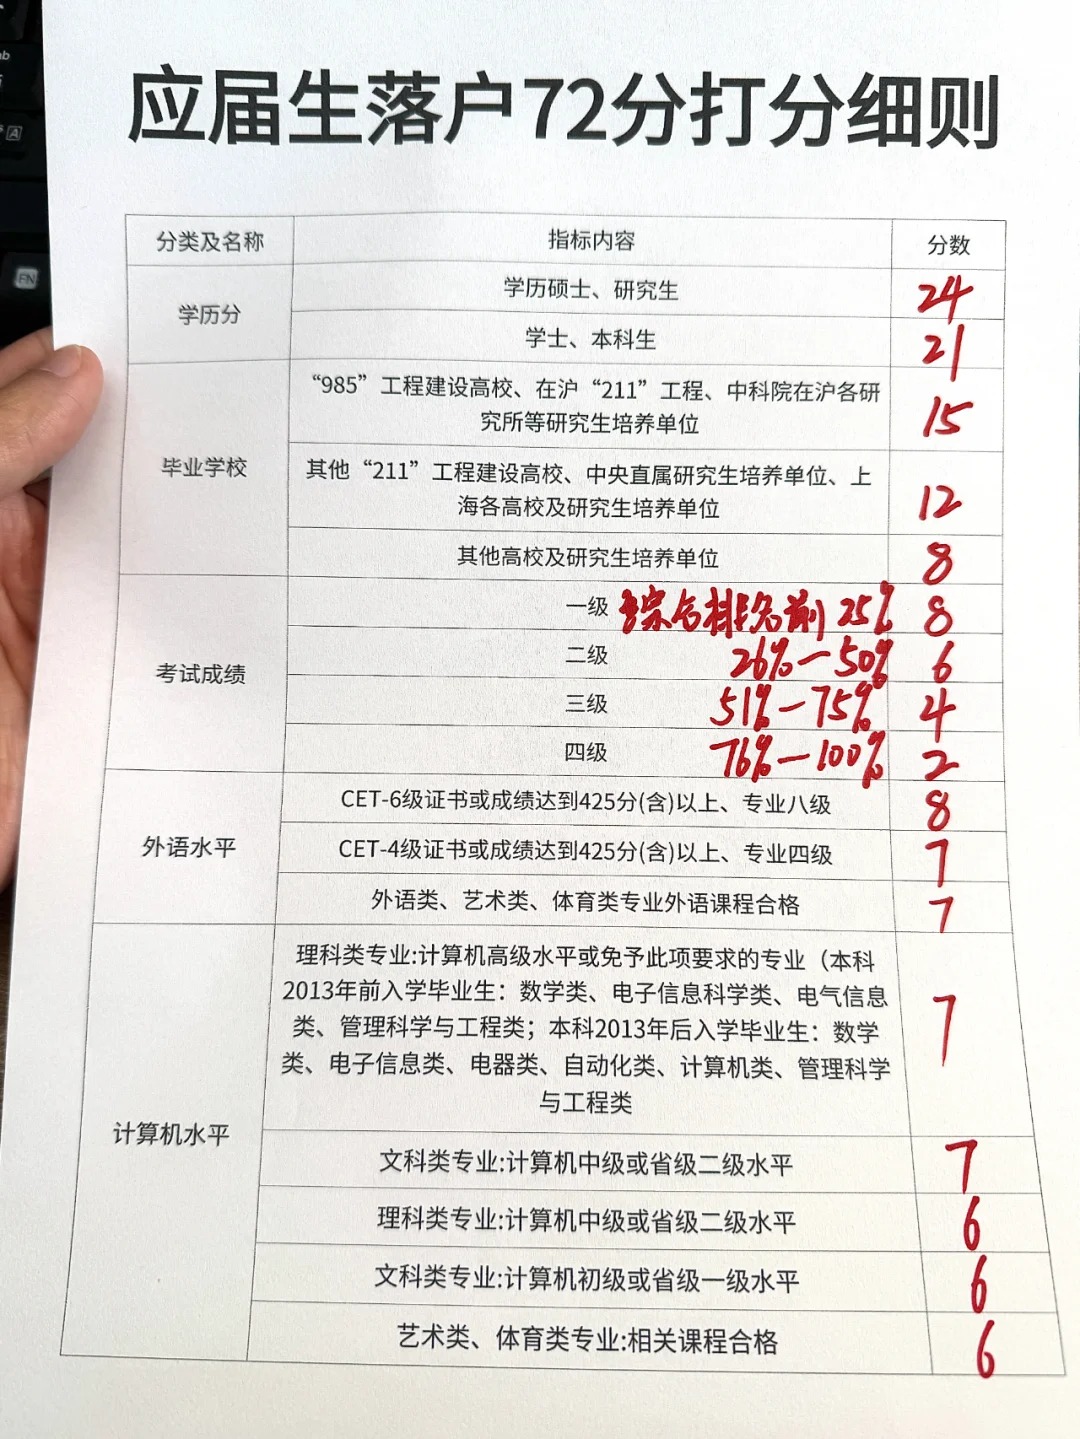 应届生落户72分打分细则
分类及名称 指标内容 分数
学历分 学历硕士、研究生 24
学士、本科生 21
毕业学校 “985”工程建设高校、在沪“211”工程、中科院在沪各研
究所等研究生培养单位 15
其他“211”工程建设高校、中央直属研究生培养单位、上
海各高校及研究生培养单位 12
其他高校及研究生培养单位 8
考试成绩 一级 综合排名前25% 8
二级 26%—50% 6
三级 51%—75% 4
四级 76%—100% 2
外语水平 CET-6级证书或成绩达到425分(含)以上、专业八级 8
CET-4级证书或成绩达到425分(含)以上、专业四级 7
外语类、艺术类、体育类专业外语课程合格 7
计算机水平 理科类专业:计算机高级水平或免予此项要求的专业（本科
2013年前入学毕业生：数学类、电子信息科学类、电气信息
类、管理科学与工程类；本科2013年后入学毕业生：数学
类、电子信息类、电器类、自动化类、计算机类、管理科学
与工程类 7
文科类专业:计算机中级或省级二级水平 7
理科类专业:计算机中级或省级二级水平 6
文科类专业:计算机初级或省级一级水平 6
艺术类、体育类专业:相关课程合格 6
FN
A